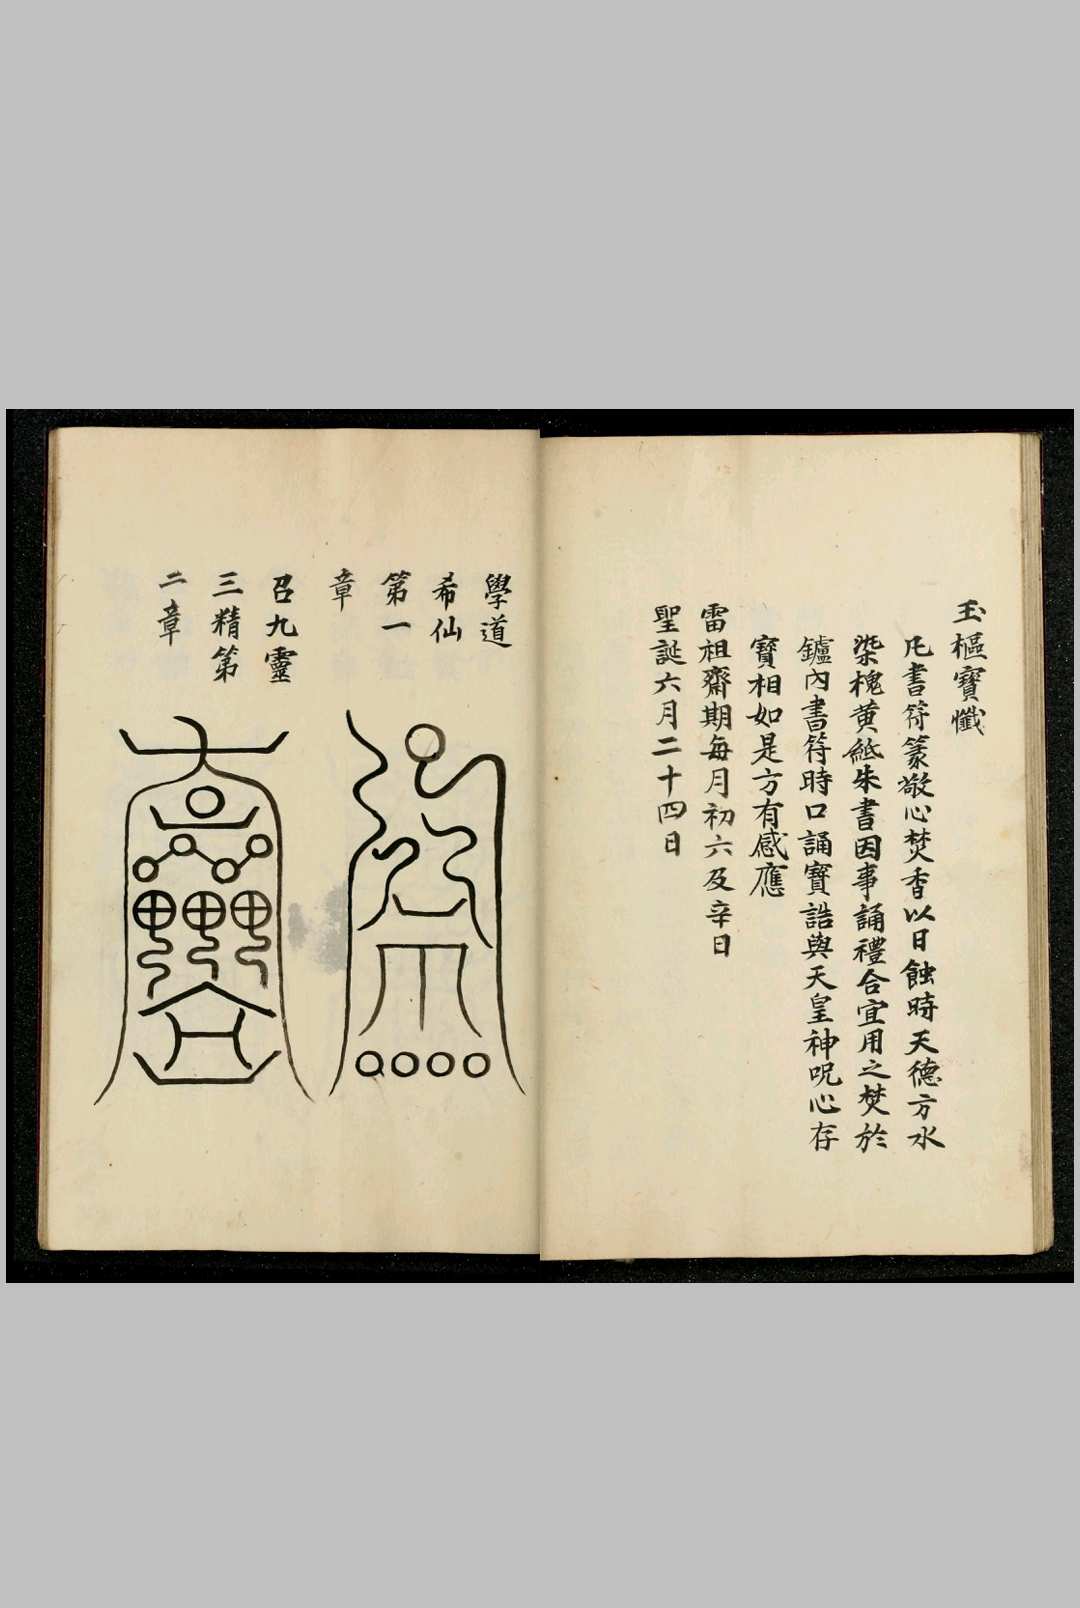 玉樞寶懺
凡書符篆敬心焚香以日蝕時天德方水
染槐黃紙朱書因事誦禮合宜用之焚於
鑪內書符時口誦寶誥與天皇神呪心存
寶相如是方有感應
雷祖齋期每月初六及辛日
聖誕六月二十四日
學道
希仙
第一
章
召九靈
三精第
二章